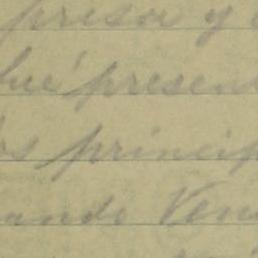 prisa y
fué present
os princip
ande Ven